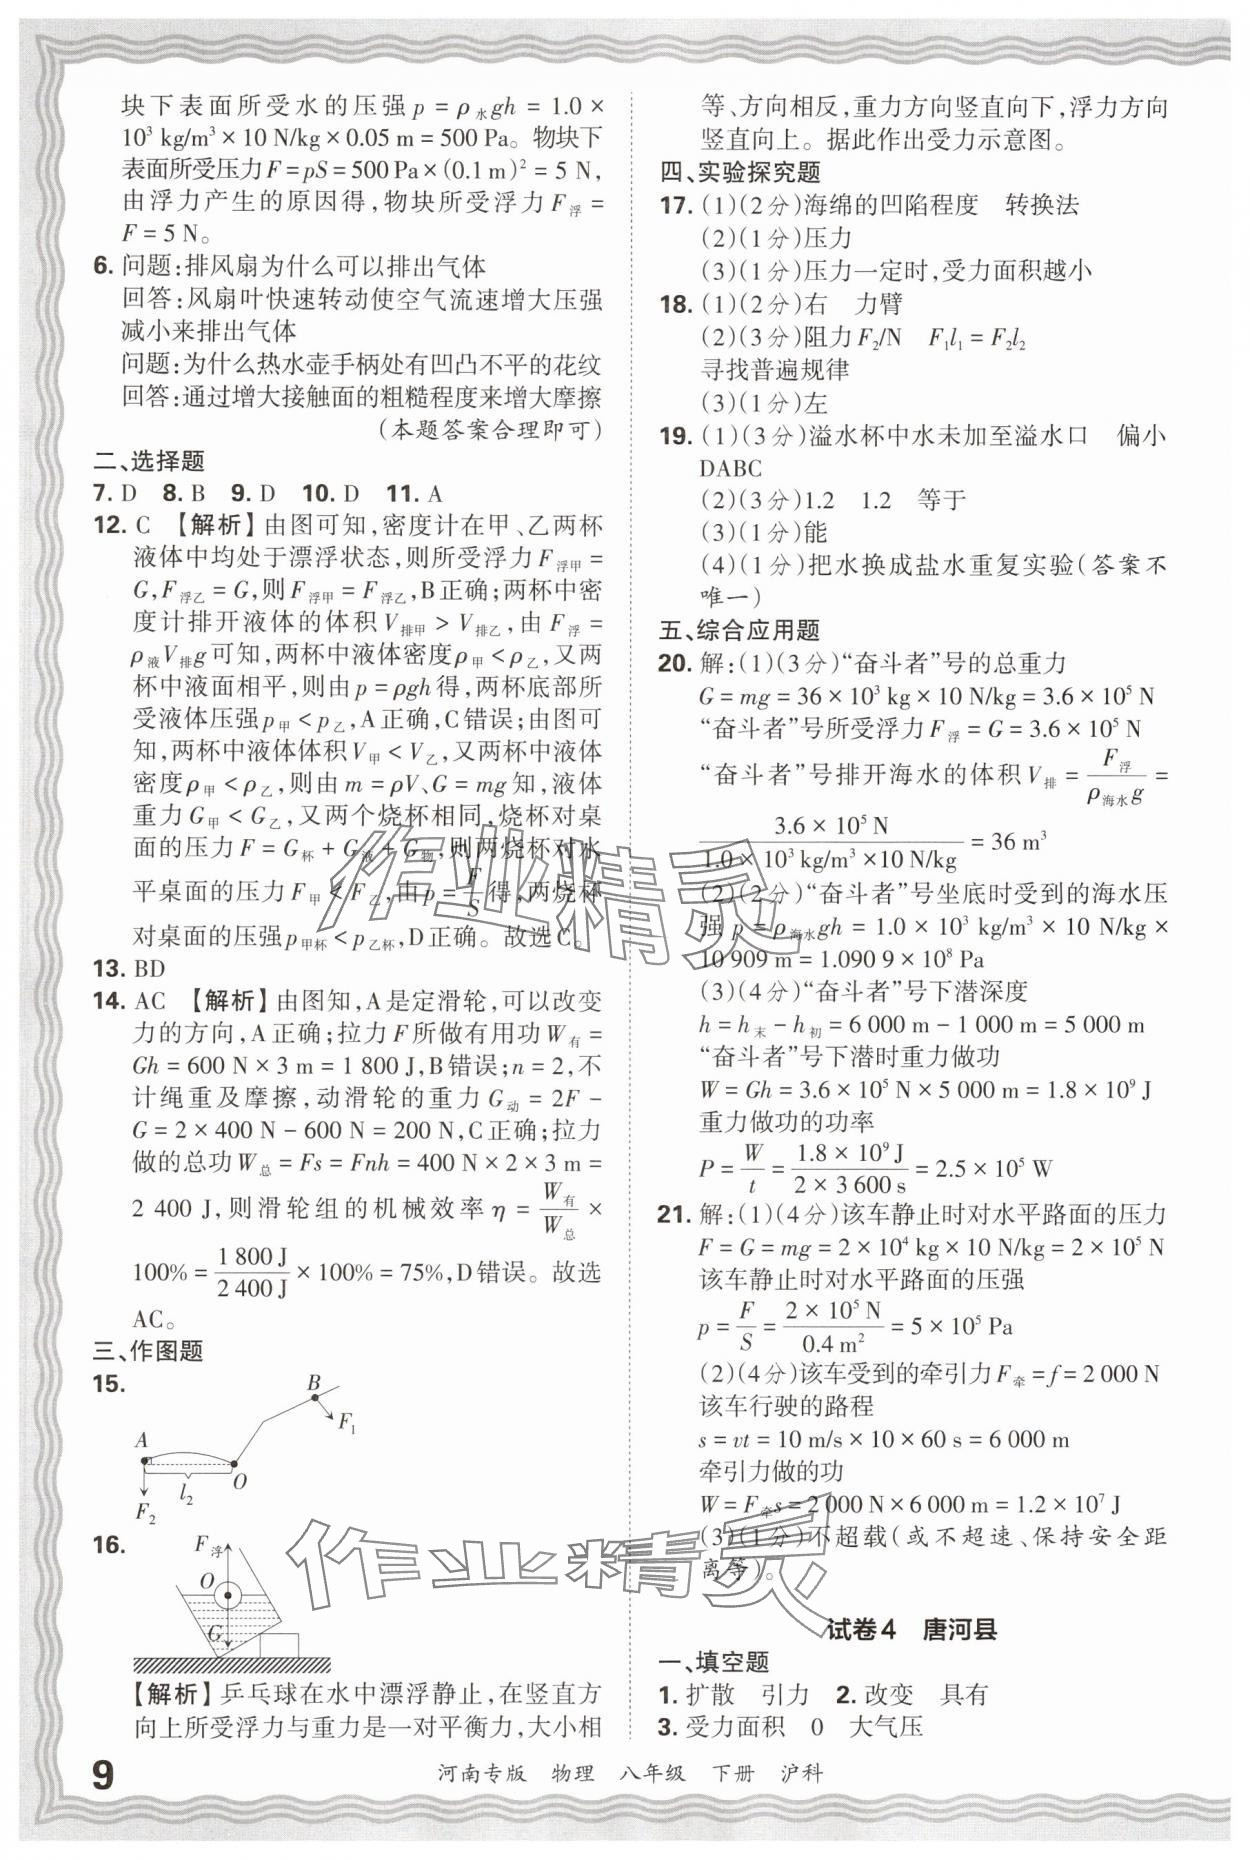 块下表面所受水的压强 p = ρ水gh = 1.0 ×
10³ kg/m³ × 10 N/kg × 0.05 m = 500 Pa。物块下
表面所受压力 F = pS = 500 Pa × (0.1 m)² = 5 N,
由浮力产生的原因得,物块所受浮力 F浮 =
F = 5 N。
6. 问题:排风扇为什么可以排出气体
回答:风扇叶快速转动使空气流速增大压强
减小来排出气体
问题:为什么热水壶手柄处有凹凸不平的花纹
回答:通过增大接触面的粗糙程度来增大摩擦
(本题答案合理即可)
二、选择题
7. D 8. B 9. D 10. D 11. A
12. C 【解析】由图可知,密度计在甲、乙两杯
液体中均处于漂浮状态,则所受浮力 F浮甲 =
G,F浮乙 = G,则 F浮甲 = F浮乙,B 正确;两杯中密
度计排开液体的体积 V排甲 > V排乙,由 F浮 =
ρ液V排g 可知,两杯中液体密度 ρ甲 < ρ乙,又两
杯中液面相平,则由 p = ρgh 得,两杯底部所
受液体压强 p甲 < p乙,A 正确,C 错误;由图可
知,两杯中液体体积 V甲 < V乙,又两杯中液体
密度 ρ甲 < ρ乙,则由 m = ρV、G = mg 知,液体
重力 G甲 < G乙,又两个烧杯相同,烧杯对桌
面的压力 F = G杯 + G液 + G物,则两烧杯对水
平桌面的压力 F甲 < F乙,由 p = F/S 得,两烧杯
对桌面的压强 p甲杯 < p乙杯,D 正确。故选 C。
13. BD
14. AC 【解析】由图知,A 是定滑轮,可以改变
力的方向,A 正确;拉力 F 所做有用功 W有 =
Gh = 600 N × 3 m = 1 800 J,B 错误;n = 2,不
计绳重及摩擦,动滑轮的重力 G动 = 2F −
G = 2 × 400 N − 600 N = 200 N,C 正确;拉力
做的总功 W总 = Fs = Fnh = 400 N × 2 × 3 m =
2 400 J,则滑轮组的机械效率 η = W有/W总 ×
100% = 1 800 J/2 400 J × 100% = 75%,D 错误。故选
AC。
三、作图题
15.
B
F₁
A
O
l₂
F₂
16.
F浮
O
G
【解析】乒乓球在水中漂浮静止,在竖直方
向上所受浮力与重力是一对平衡力,大小相
等、方向相反,重力方向竖直向下,浮力方向
竖直向上。据此作出受力示意图。
四、实验探究题
17. (1)(2 分)海绵的凹陷程度 转换法
(2)(1 分)压力
(3)(1 分)压力一定时,受力面积越小
18. (1)(2 分)右 力臂
(2)(3 分)阻力 F₂/N F₁l₁ = F₂l₂
寻找普遍规律
(3)(1 分)左
19. (1)(3 分)溢水杯中水未加至溢水口 偏小
DABC
(2)(3 分)1.2 1.2 等于
(3)(1 分)能
(4)(1 分)把水换成盐水重复实验(答案不
唯一)
五、综合应用题
20. 解:(1)(3 分)“奋斗者”号的总重力
G = mg = 36 × 10³ kg × 10 N/kg = 3.6 × 10⁵ N
“奋斗者”号所受浮力 F浮 = G = 3.6 × 10⁵ N
“奋斗者”号排开海水的体积 V排 = F浮/ρ海水g =
3.6 × 10⁵ N/1.0 × 10³ kg/m³ × 10 N/kg = 36 m³
(2)(2 分)“奋斗者”号坐底时受到的海水压
强 p = ρ海水gh = 1.0 × 10³ kg/m³ × 10 N/kg ×
10 909 m = 1.090 9 × 10⁸ Pa
(3)(4 分)“奋斗者”号下潜深度
h = h末 − h初 = 6 000 m − 1 000 m = 5 000 m
“奋斗者”号下潜时重力做功
W = Gh = 3.6 × 10⁵ N × 5 000 m = 1.8 × 10⁹ J
重力做功的功率
P = W/t = 1.8 × 10⁹ J/2 × 3 600 s = 2.5 × 10⁵ W
21. 解:(1)(4 分)该车静止时对水平路面的压力
F = G = mg = 2 × 10⁴ kg × 10 N/kg = 2 × 10⁵ N
该车静止时对水平路面的压强
p = F/S = 2 × 10⁵ N/0.4 m² = 5 × 10⁵ Pa
(2)(4 分)该车受到的牵引力 F牵 = f = 2 000 N
该车行驶的路程
s = vt = 10 m/s × 10 × 60 s = 6 000 m
牵引力做的功
W = F牵s = 2 000 N × 6 000 m = 1.2 × 10⁷ J
(3)(1 分)不超载(或不超速、保持安全距
离等)。
试卷 4 唐河县
一、填空题
1. 扩散 引力 2. 改变 具有
3. 受力面积 0 大气压
9 河南专版 物理 八年级 下册 沪科
作业精灵
作业精灵